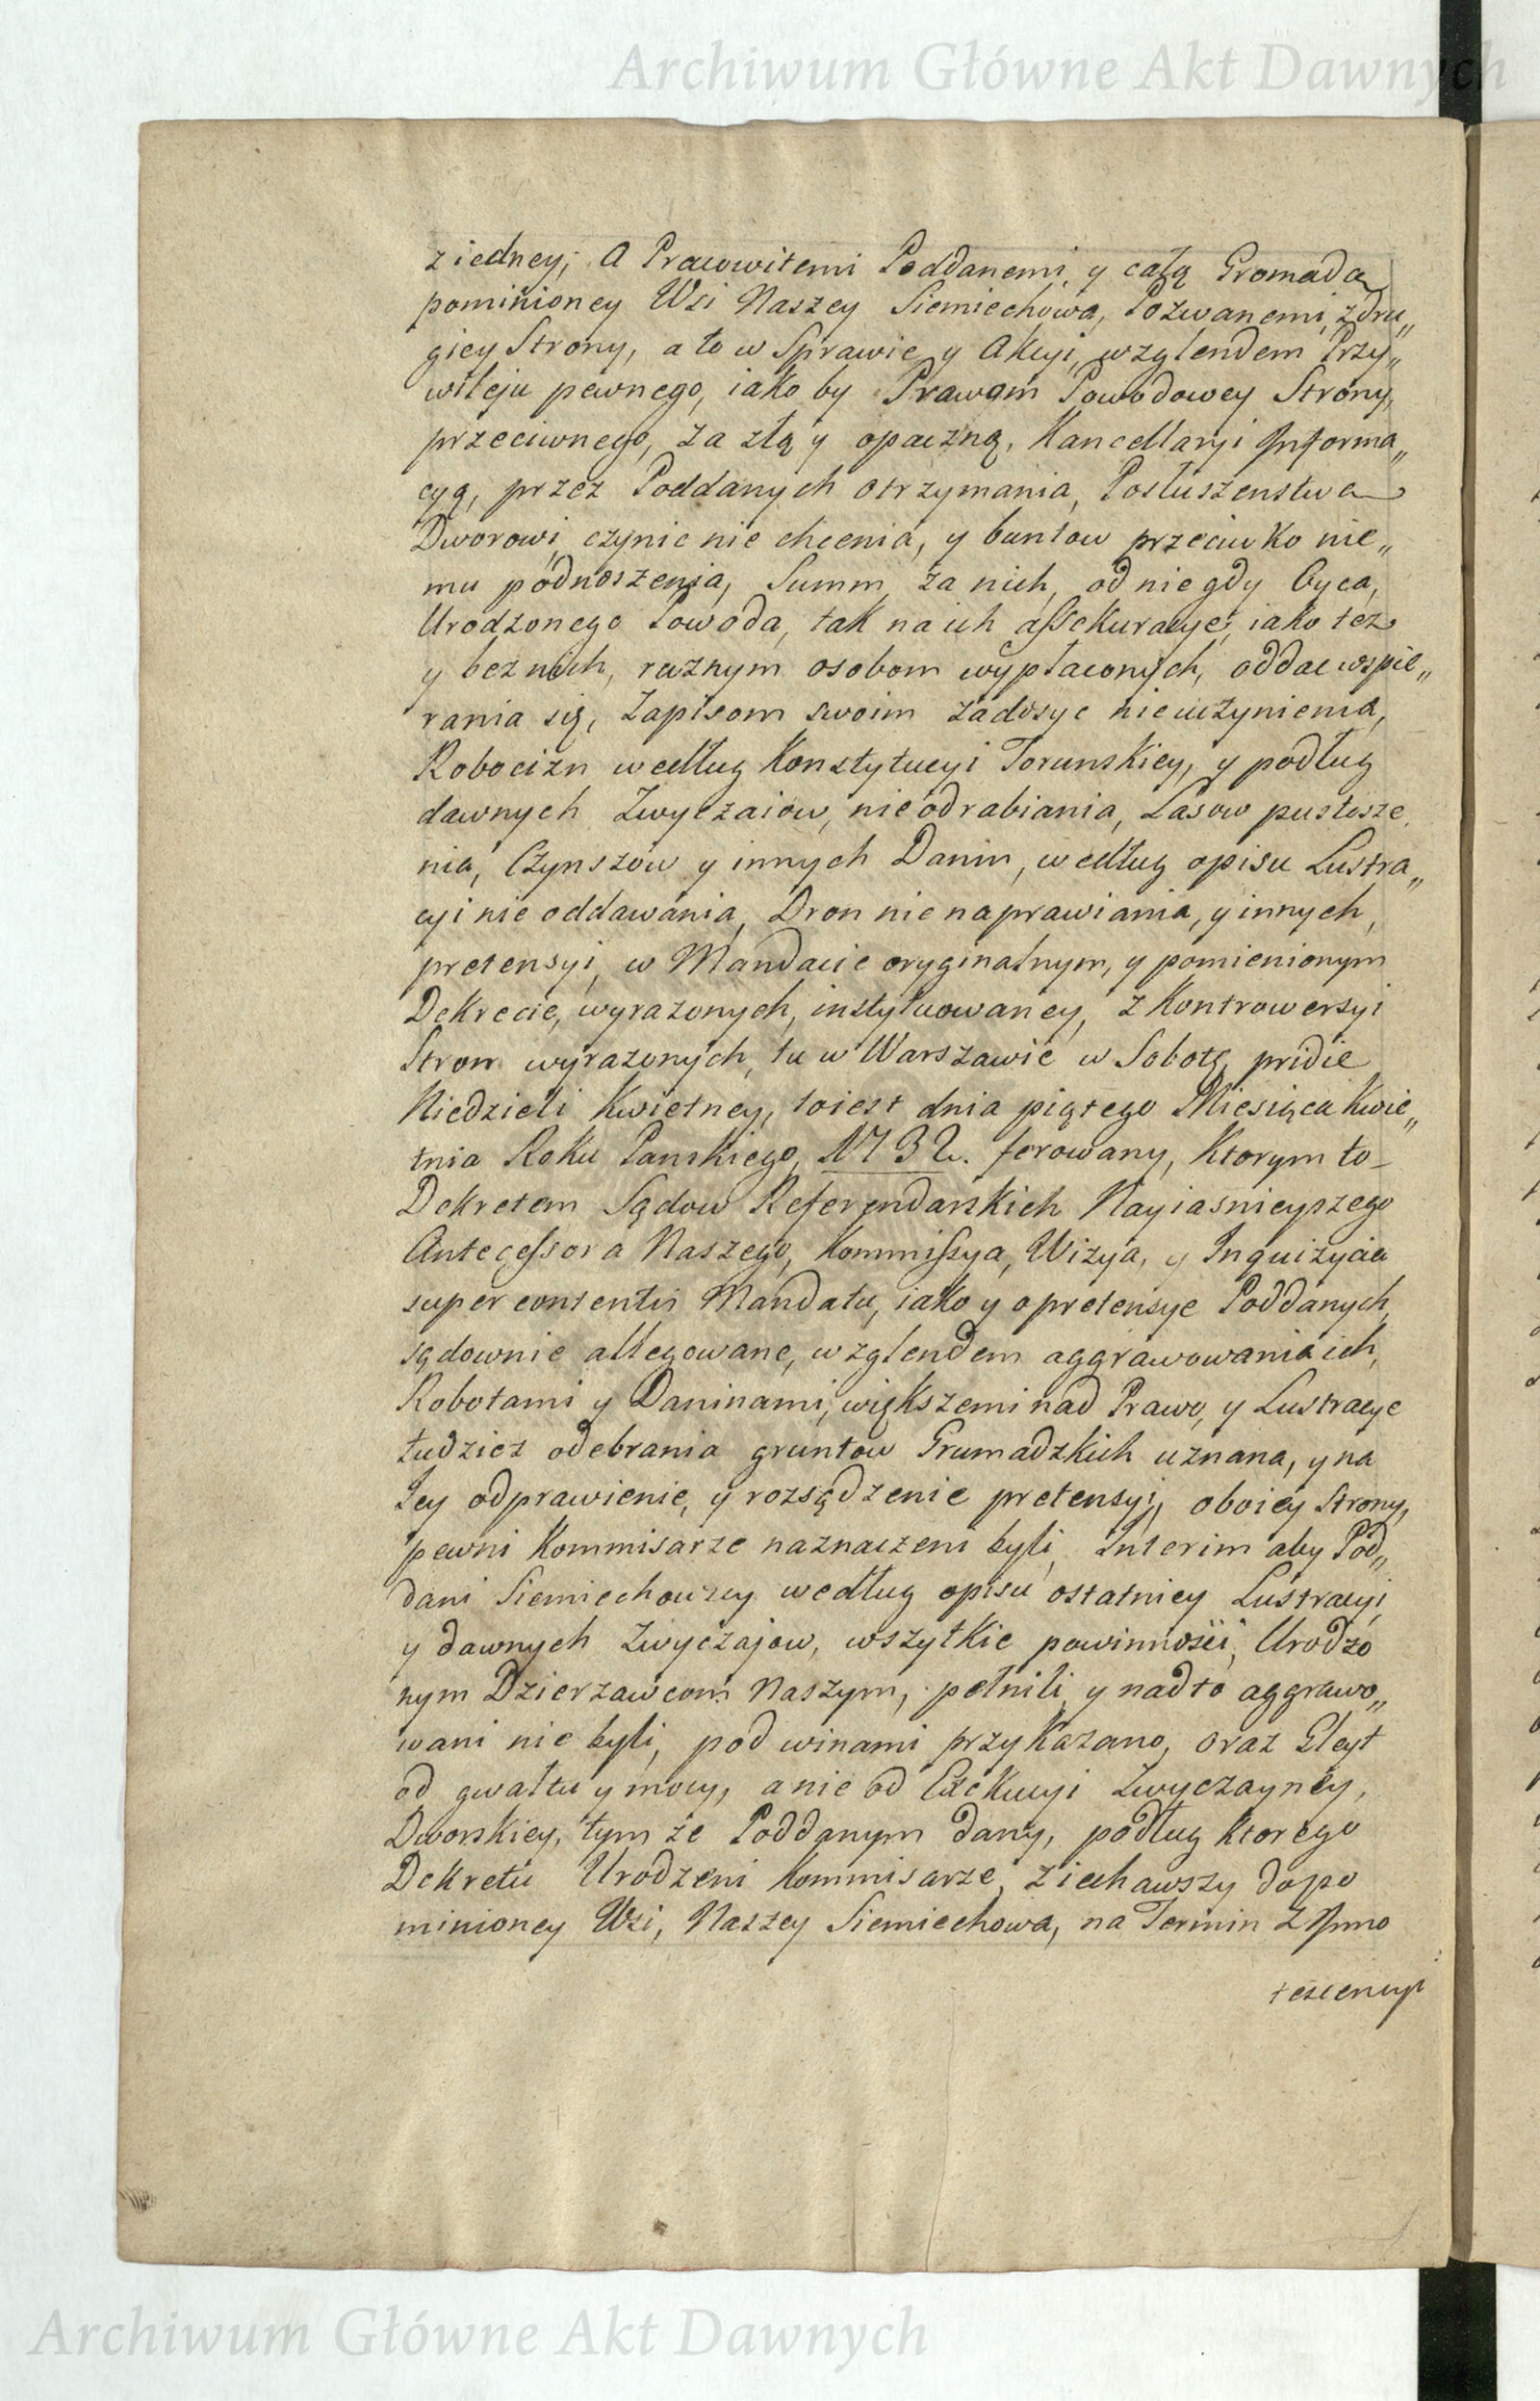 Archiwum Główne Akt Dawnych
z iedney; A Pracowitemi Poddanemi, y całą Gromadą
pominioney Wsi Naszey Siemiechowa, Pozwanemi, z dru„
giey Strony, a to w Sprawie y Akcyi, względem Przy„
wileju pewnego, iako by Prawam Powodowey Strony,
przeciwnego, za złą y opaczną, Kancellaryi Informa„
cyą, przez Poddanych otrzymania, Posłuszenstwa
Dworowi, czynic nie chcenia, y buntow przeciwko nie„
mu podnoszenia, Summ, za nich, od niegdy Oyca,
Urodzonego Powoda, tak na ich assekuracye, iako tez
y bez nich, roznym osobom wypłaconych, oddac wspie„
rania się, Zapisom swoim zadosyc nieuczynienia,
Robocizn według Konstytucyi Torunskiey, y podług
dawnych Zwyczaiow, nieodrabiania, Lasow pustosze
nia, Czynszow y innych Danin, według opisu Lustra„
cyi nie oddawania, Dron nie naprawiania, y innych,
pretensyi, w Mandacie oryginalnym, y pomienionym
Dekrecie, wyrazonych, instytuowaney, z Kontrowersyi
Stron wyrazonych, tu w Warszawie w Sobotę pridie
Niedzieli Kwietney, toiest dnia piątego Miesiąca Kwie„
tnia Roku Panskiego, 1732. ferowany, Ktorym to-
Dekretem Sądow Referendarskich Nayiasnieyszego
Antecessora Naszego, Kommissya, Wizya, y Inquizycia
super contentis Mandatu, iako y o pretensye Poddanych,
sądownie allegowane, względem aggrawowania ich,
Robotami y Daninami, większemi nad Prawo, y Lustracye
tudziez odebrania gruntow Grumadzkich uznana, y na
Iey odprawienie, y rozsądzenie pretensyi, oboiey Strony,
pewni Kommisarze naznaczeni byli, Interim aby Pod„
dani Siemiechowscy według opisu ostatniey Lustracyi,
y dawnych Zwyczajow, wszytkie powinnosci, Urodzo
nym Dzierzawcom Naszym, pełnili, y nadto aggrawo„
wani nie byli, pod winami przykazano, oraz Gleyt
od gwałtu y mocy, a nie od Exekucyi Zwyczayney,
Dworskiey, tym ze Poddanym dany, podług ktorego
Dekretu Urodzeni Kommisarze, ziechawszy dopo
minioney Wsi, Naszey Siemiechowa, na Termin z Inno
tescencyi
Archiwum Główne Akt Dawnych